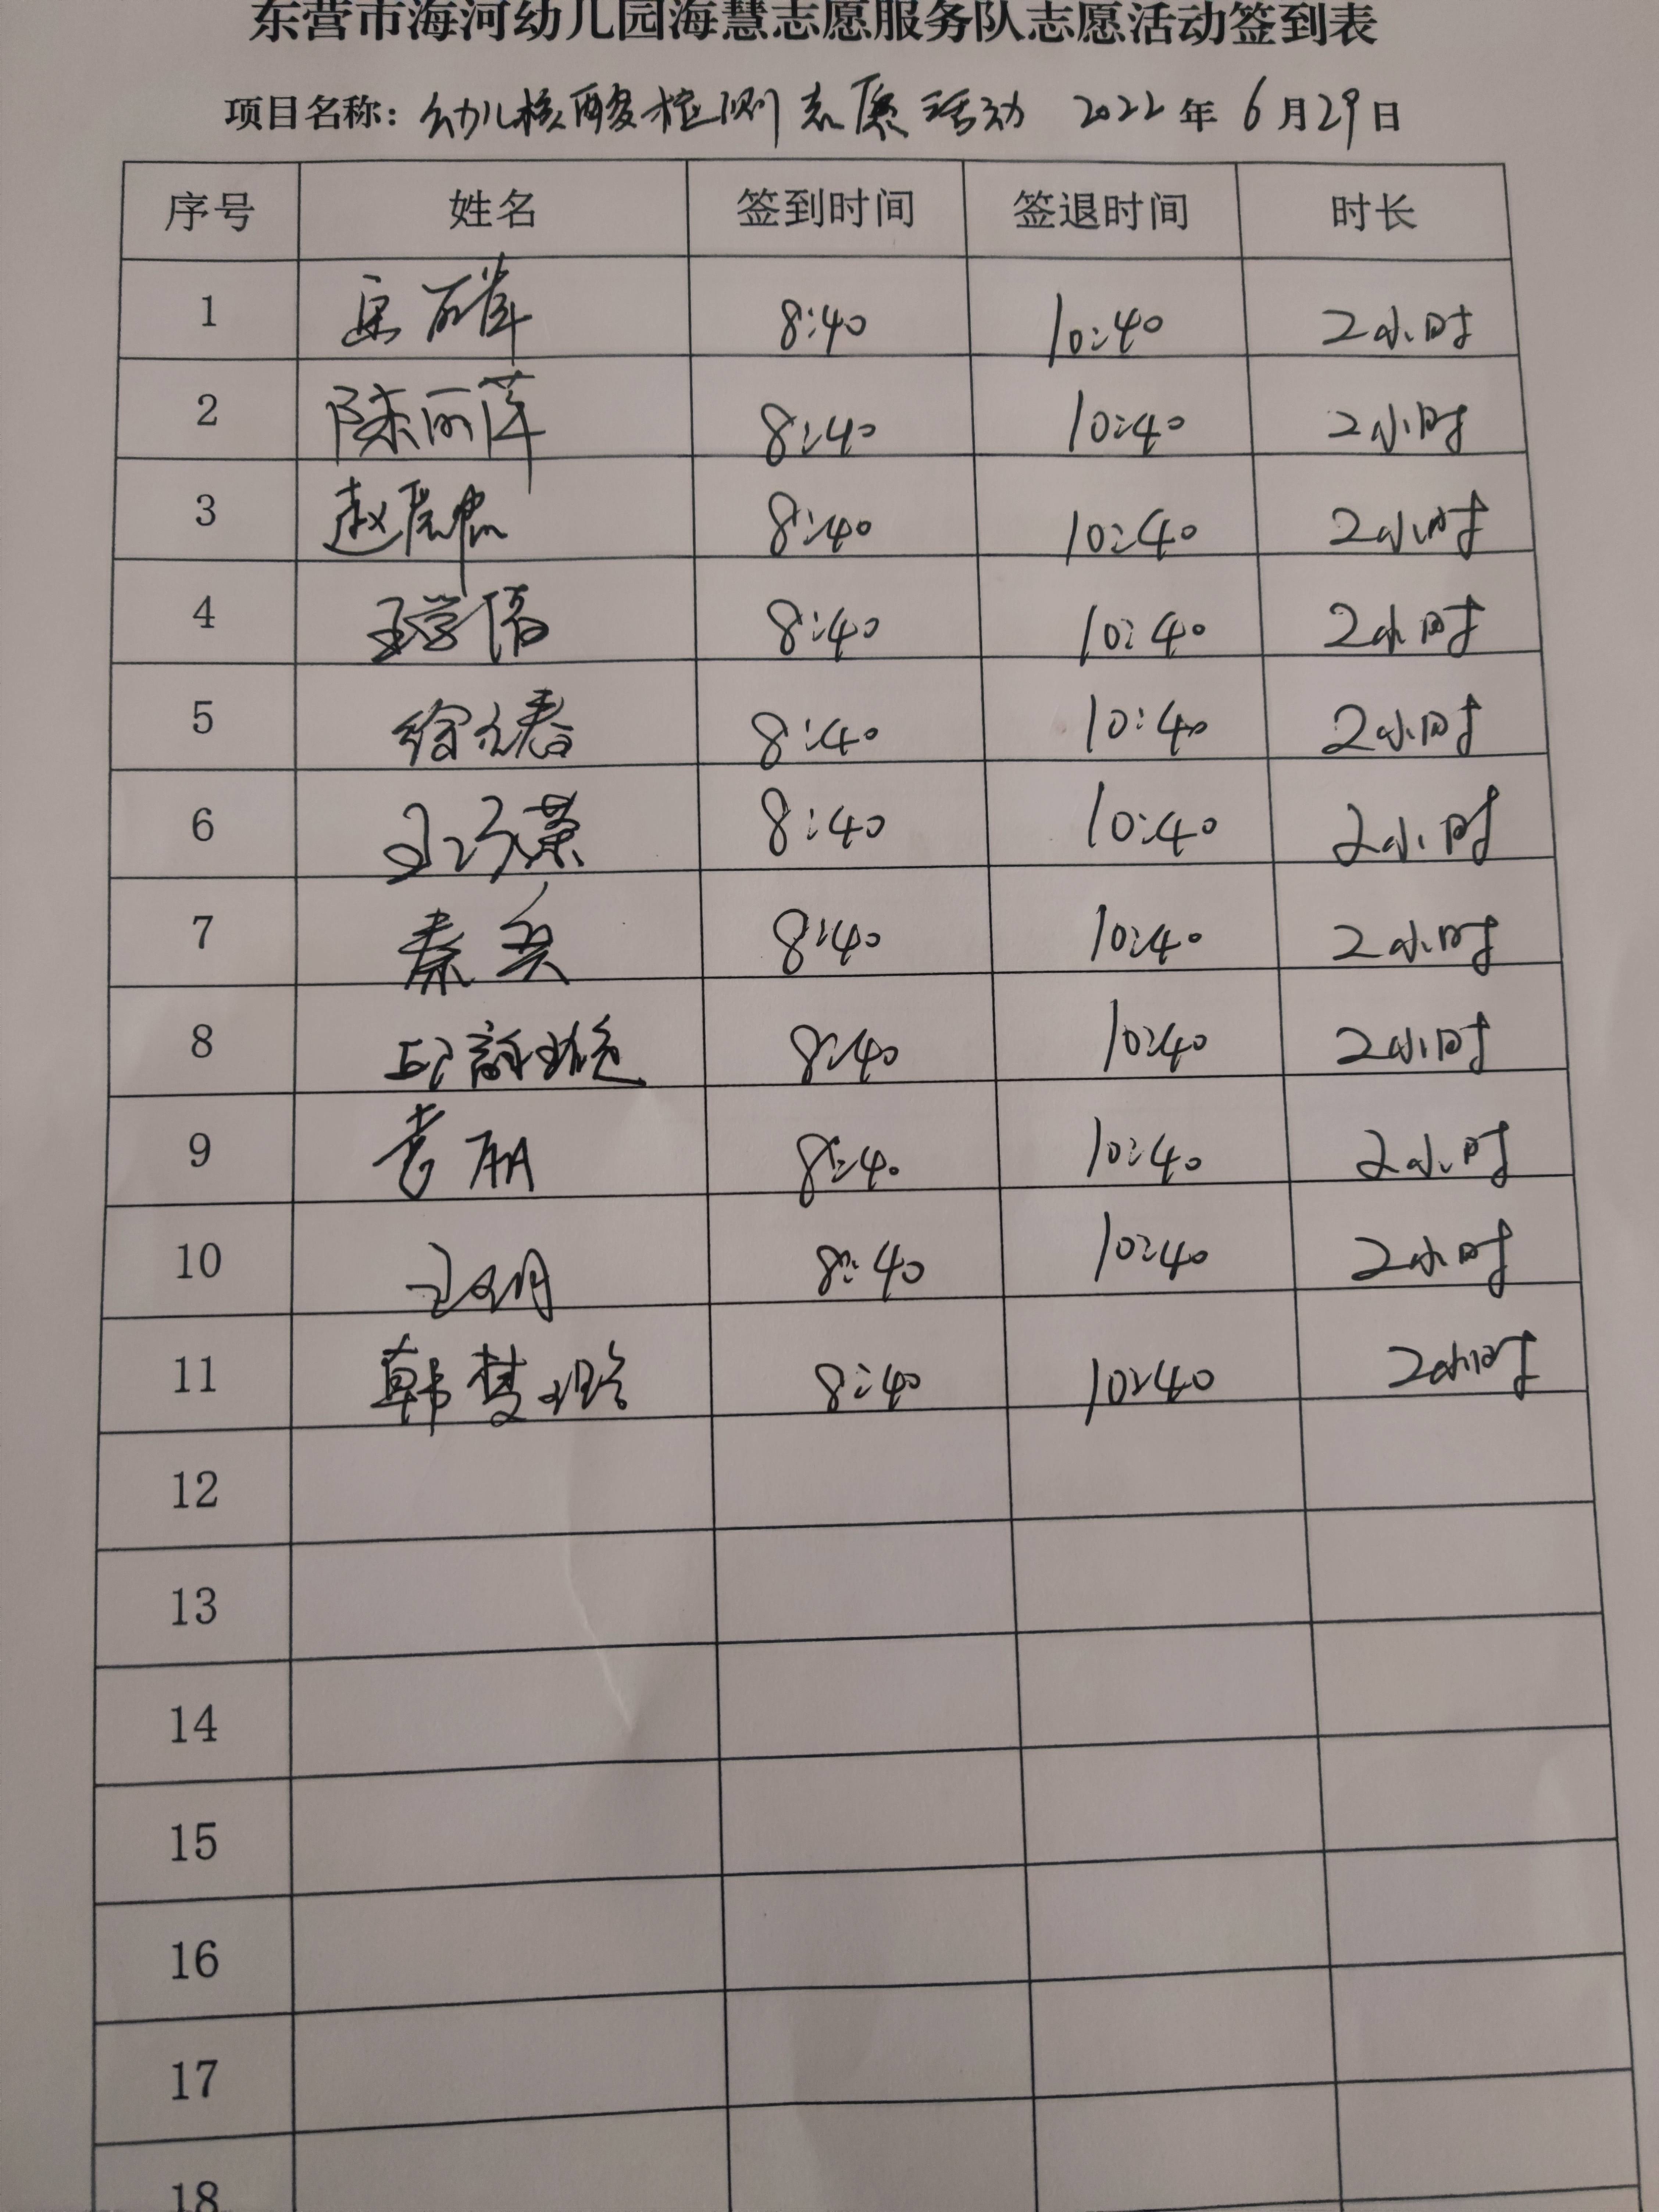 东营市海河幼儿园海慧志愿服务队志愿活动签到表
项目名称：幼儿核酸检测志愿活动 2022年6月29日
序号 姓名 签到时间 签退时间 时长
1 8:40 10:40 2小时
2 陈丽萍 8:40 10:40 2小时
3 8:40 10:40 2小时
4 王学倩 8:40 10:40 2小时
5 徐元春 8:40 10:40 2小时
6 王巧荣 8:40 10:40 2小时
7 秦 8:40 10:40 2小时
8 8:40 10:40 2小时
9 袁丽 8:40 10:40 2小时
10 8:40 10:40 2小时
11 韩梦璐 8:40 10:40 2小时
12
13
14
15
16
17
18